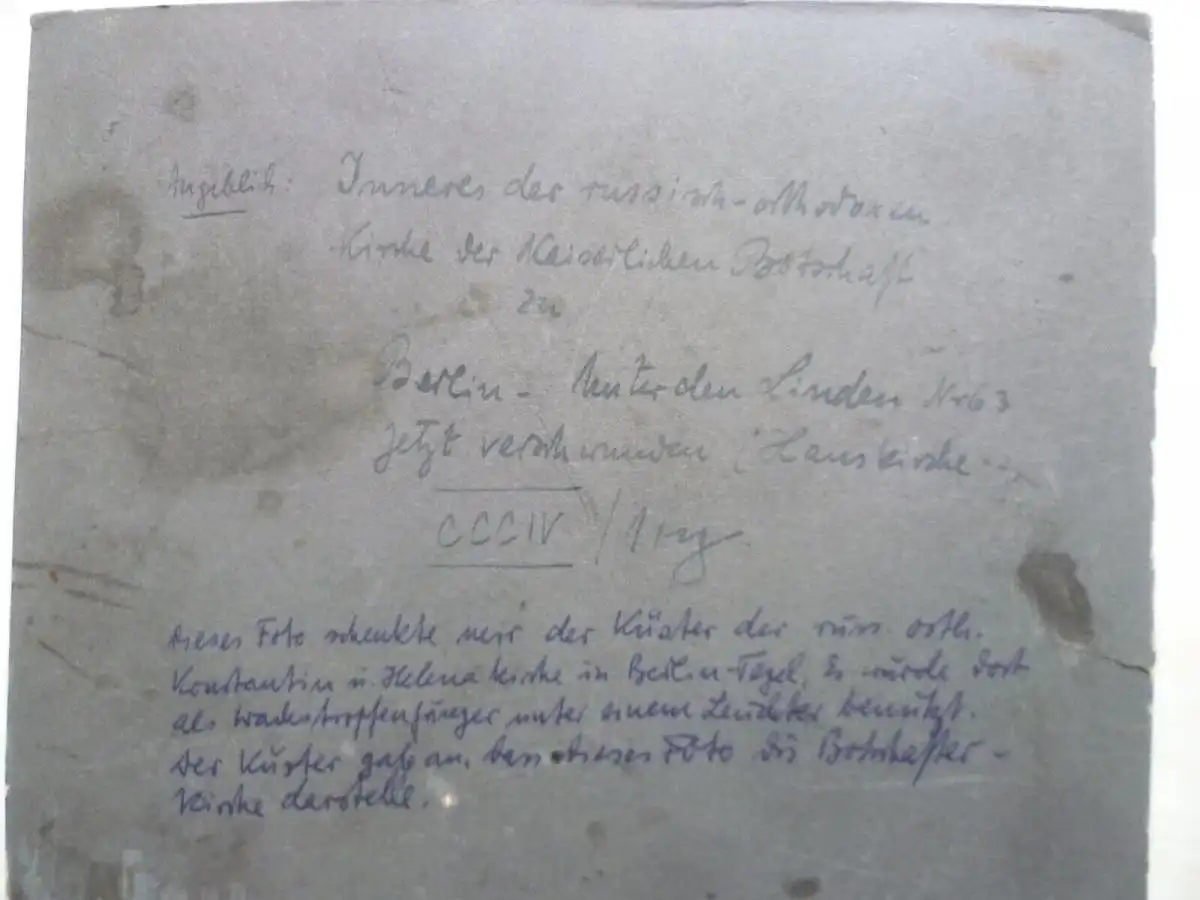 Angeblich: Inneres der russisch-orthodoxen
Kirche der Kaiserlichen Botschaft
zu
Berlin - Unter den Linden Nr 63
jetzt verschwunden (Hauskirche
CCCIV /
Dieses Foto schenkte mir der Küster der russ. orth.
Konstantin u. Helena Kirche in Berlin-Tegel. Es wurde dort
als Wachstropfenfänger unter einem Leuchter benützt.
Der Küster gab an, dass dieses Foto die Botschafter-
Kirche darstelle.